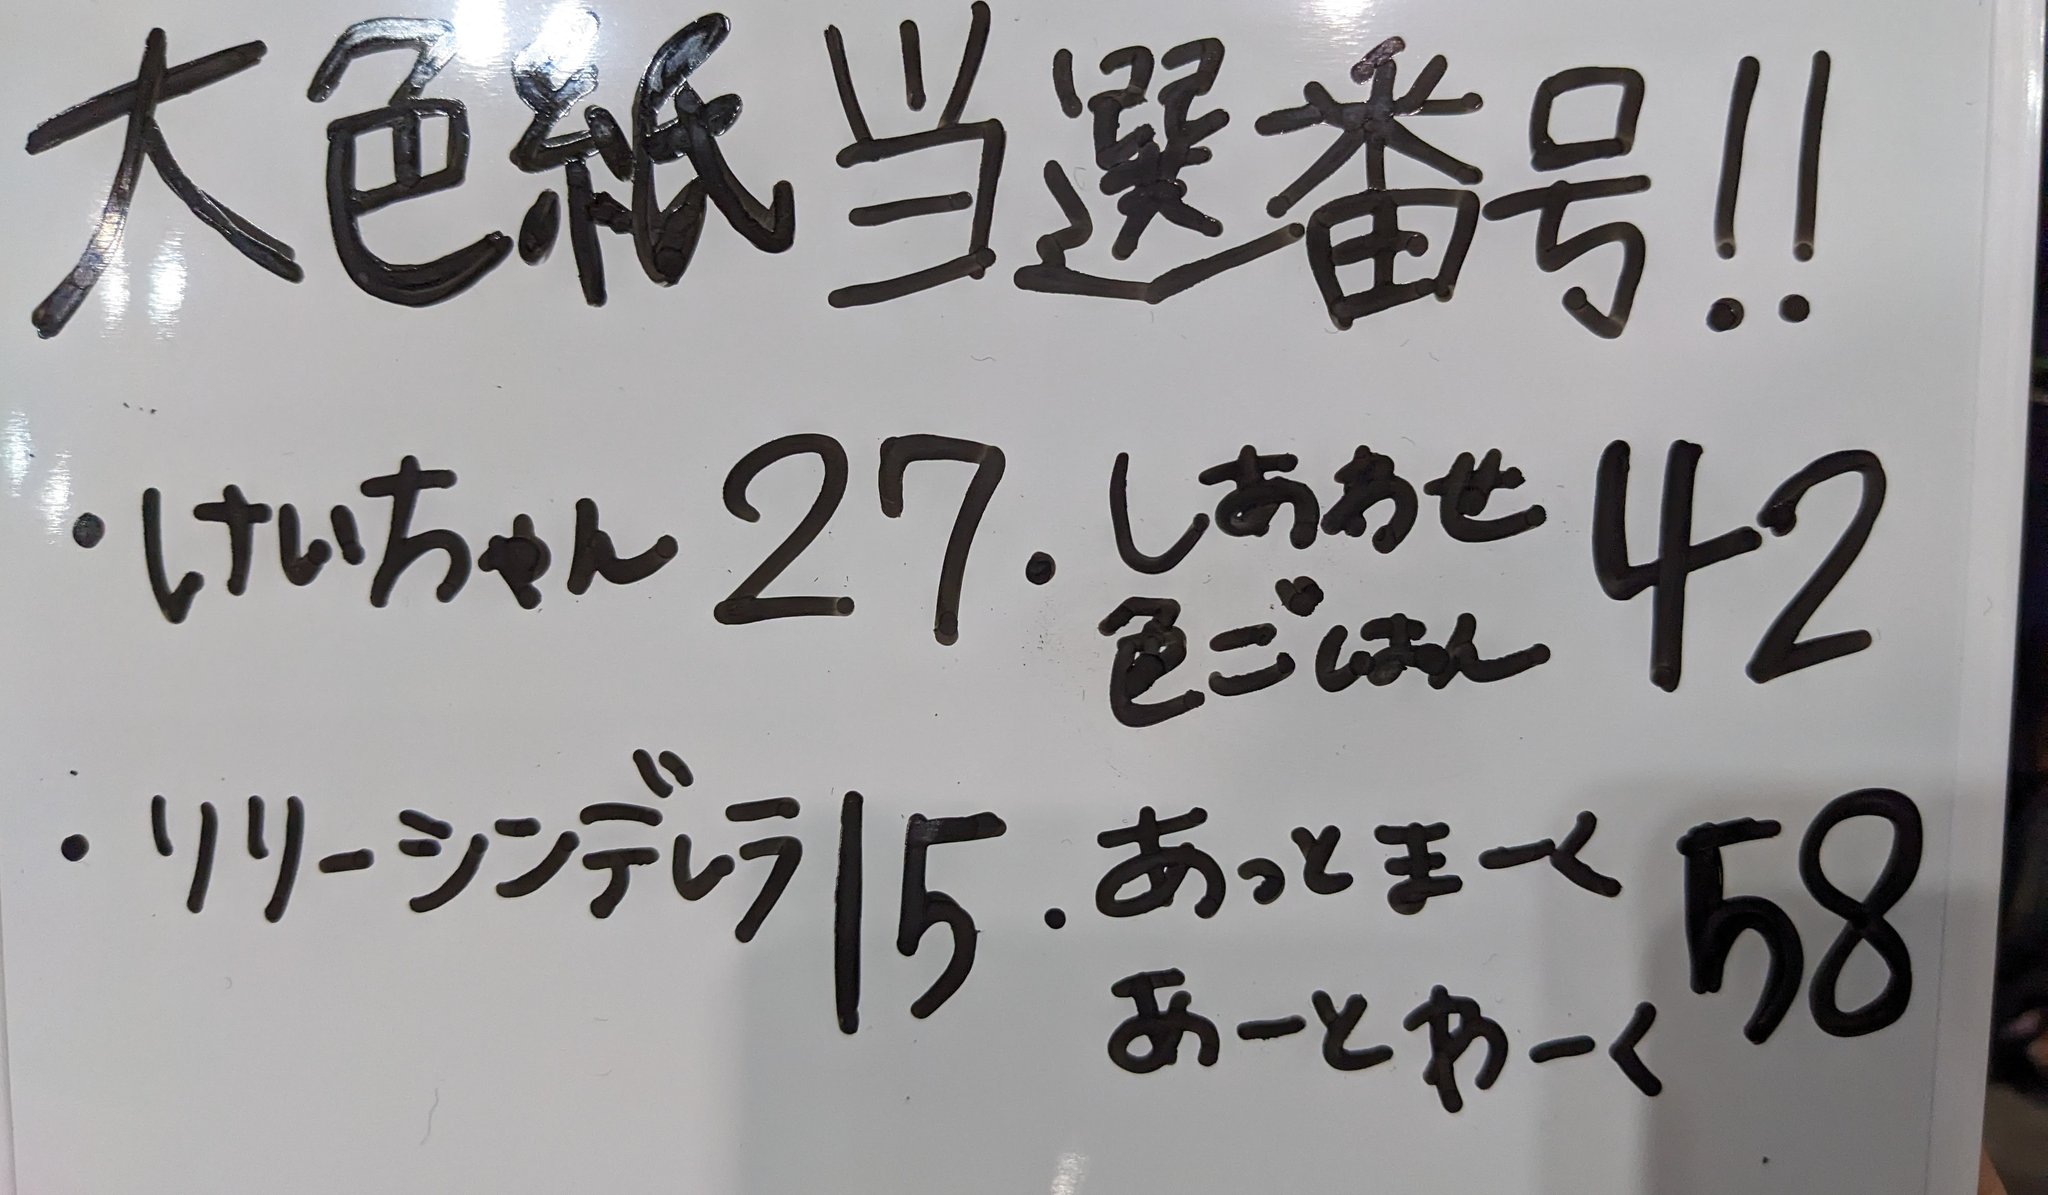 大色紙当選番号!!
・けいちゃん 27
・しあわせ色ごはん 42
・リリーシンデレラ 15
・あっとまーくあーとわーく 58